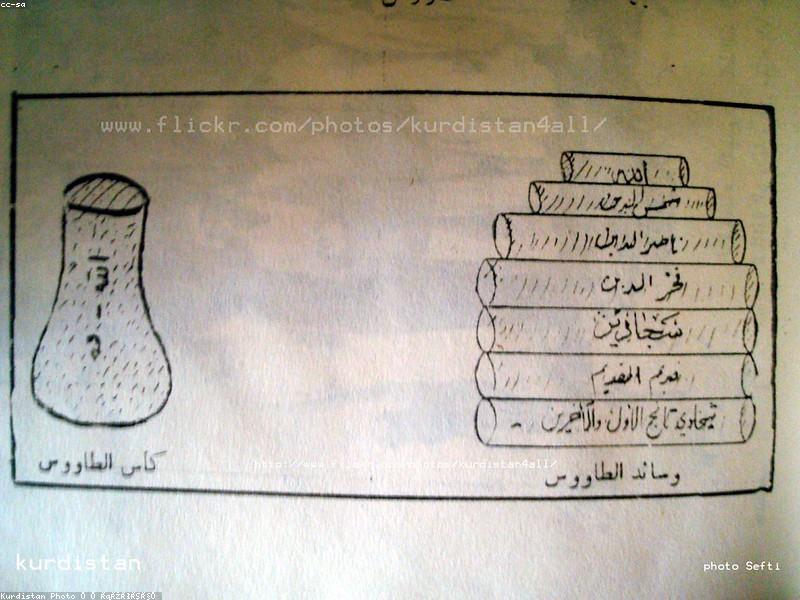 cc-sa
www.flickr.com/photos/kurdistan4all/
الله
شمس الدين
ناصر الدين
فخر الدين
سجادين
قديم القديم
تاج الاول والآخرين
الله
كأس الطاووس
وسائد الطاووس
http://www.flickr.com/photos/kurdistan4all/
kurdistan
photo Sefti
Kurdistan Photo